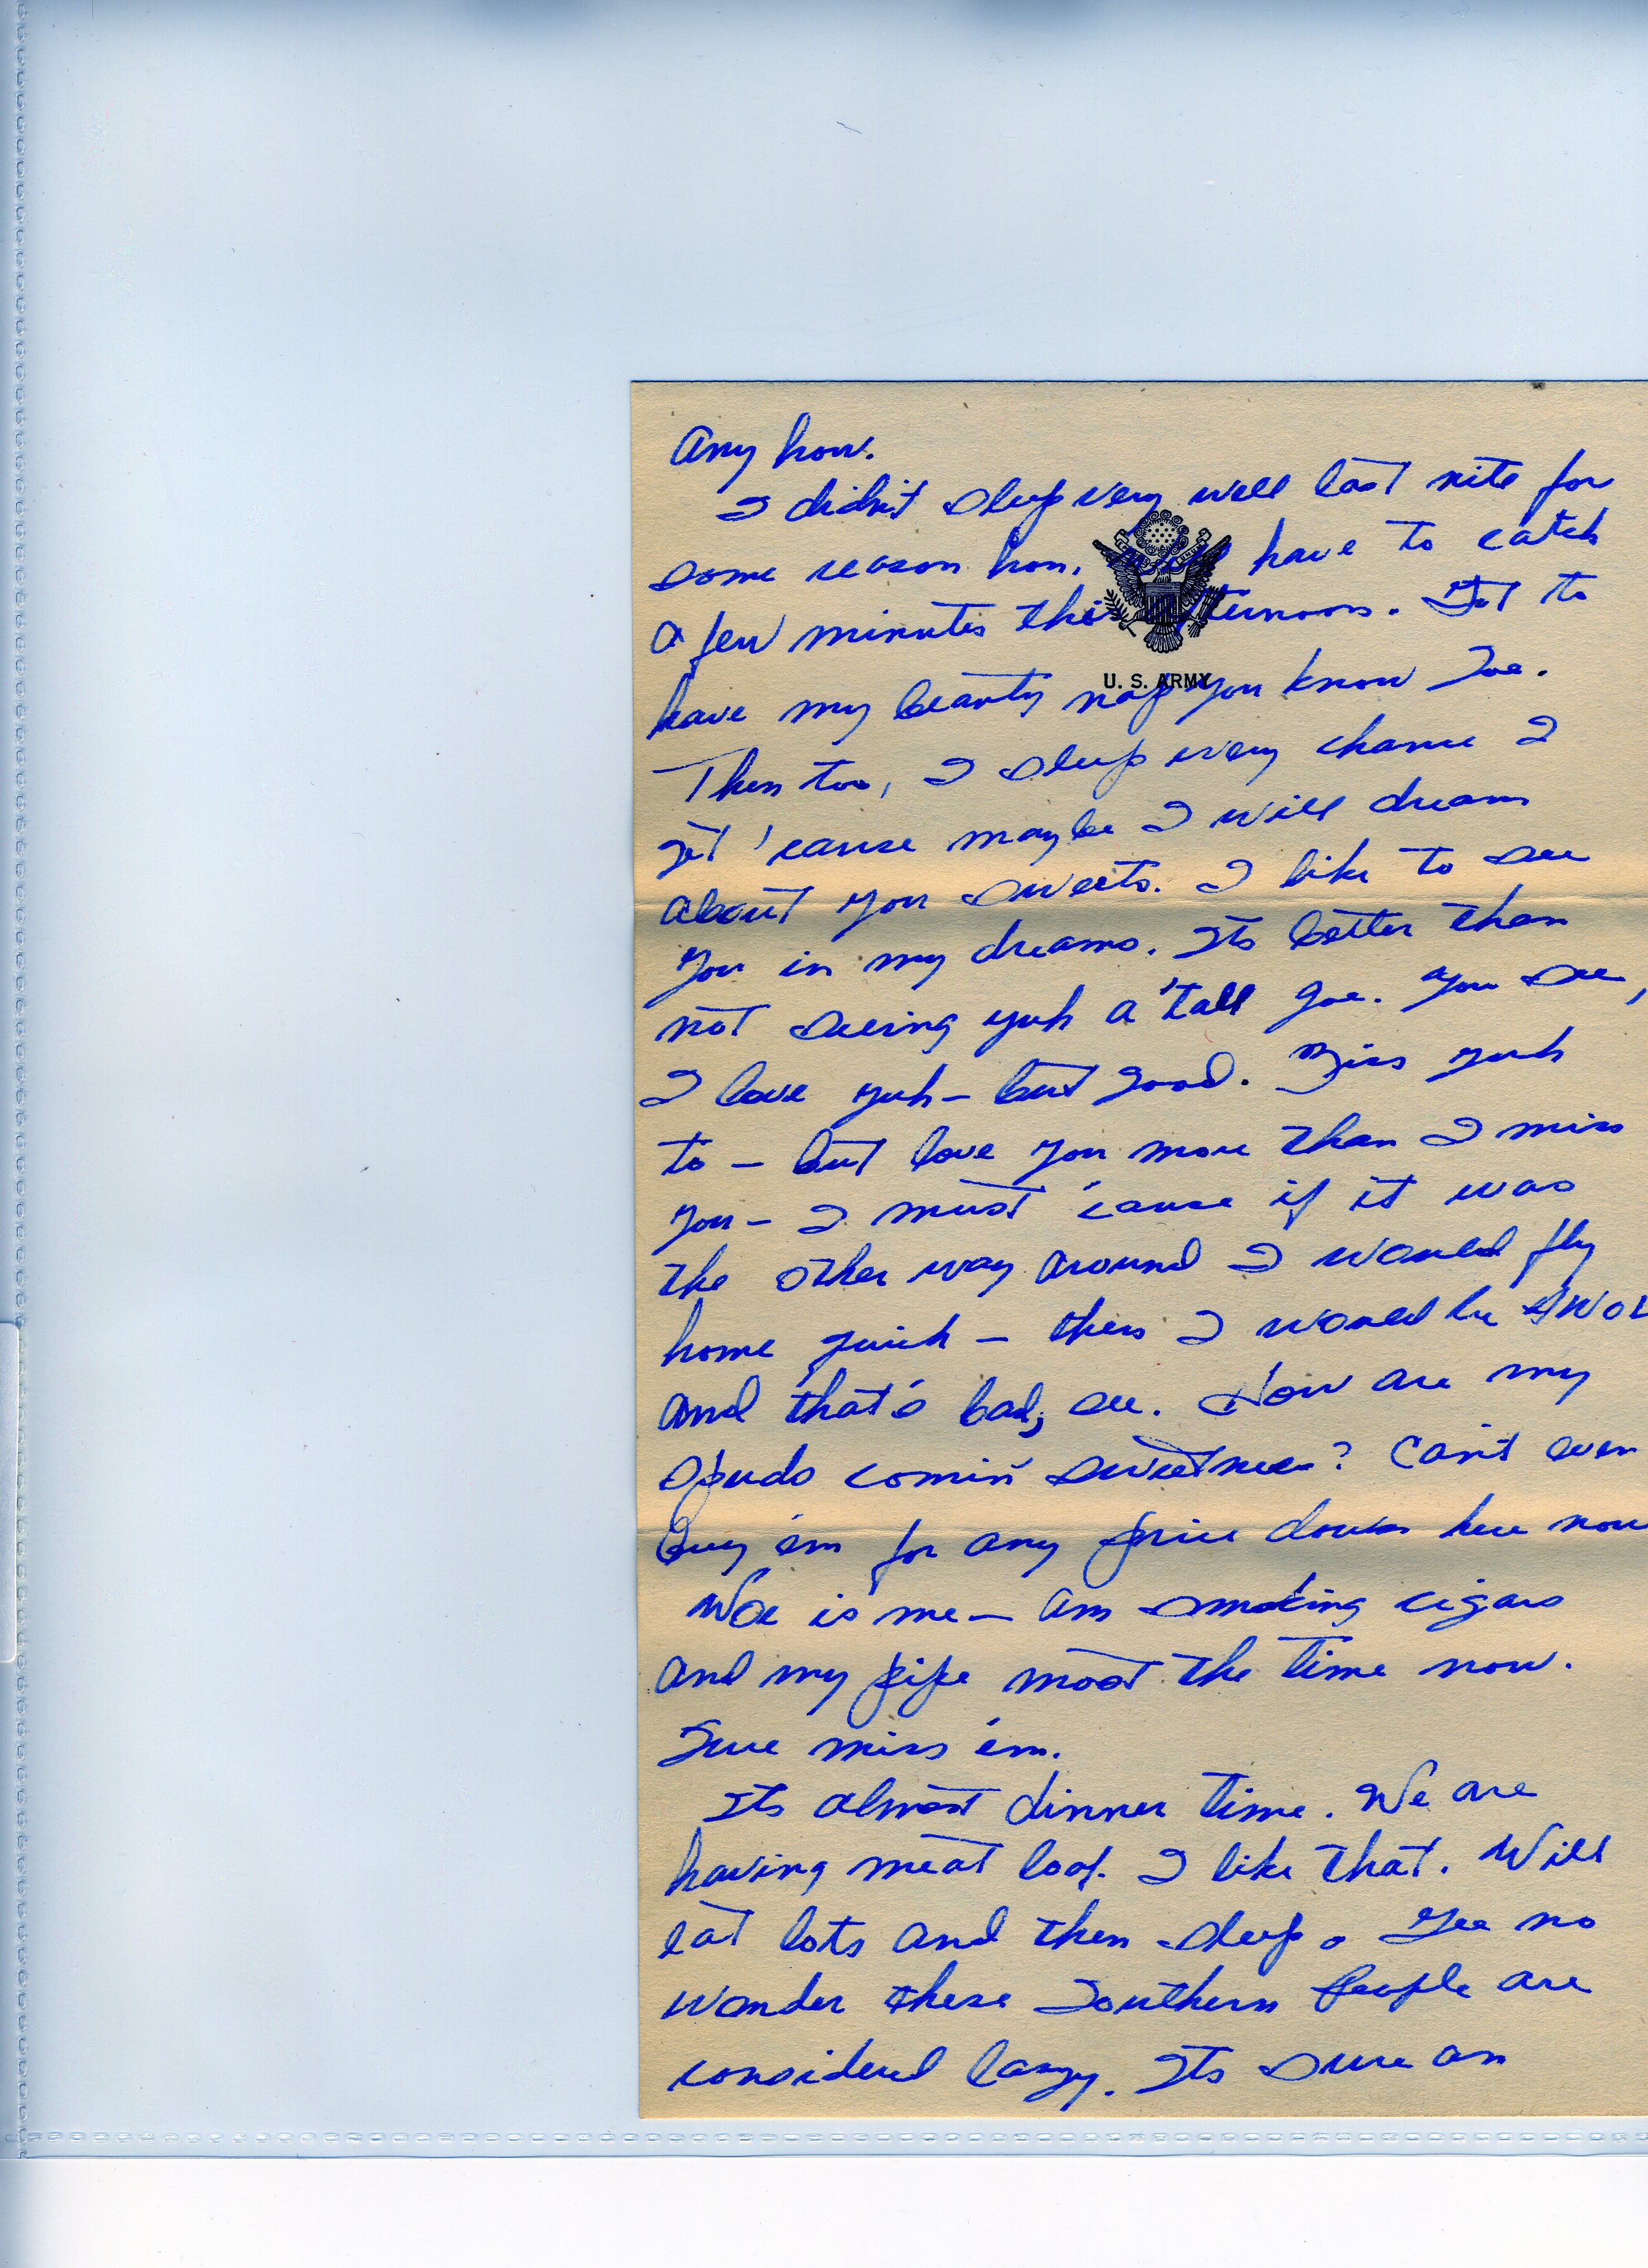 Any how.
I didn't sleep very well last nite for
some reason hon. have to catch
a few minutes this afternoon. Got to
U. S. ARMY
have my beauty nap you know Joe.
Then too, I sleep every chance I
get 'cause maybe I will dream
about you sweets. I like to see
you in my dreams. Its better than
not seeing yuh a'tall Joe. You see,
I love yuh - but good. Miss yuh
to - but love you more than I miss
you - I must 'cause if it was
the other way around I would fly
home quick - then I would be AWOL
and that's bad, see. How are my
spuds comin' sweetness? Can't even
buy 'em for any price down here now
Woe is me - am smoking cigars
and my pipe most the time now.
Sure miss 'em.
Its almost dinner time. We are
having meat loaf. I like that. Will
eat lots and then sleep. Gee no
wonder these Southern People are
considered lazy. Its sure an